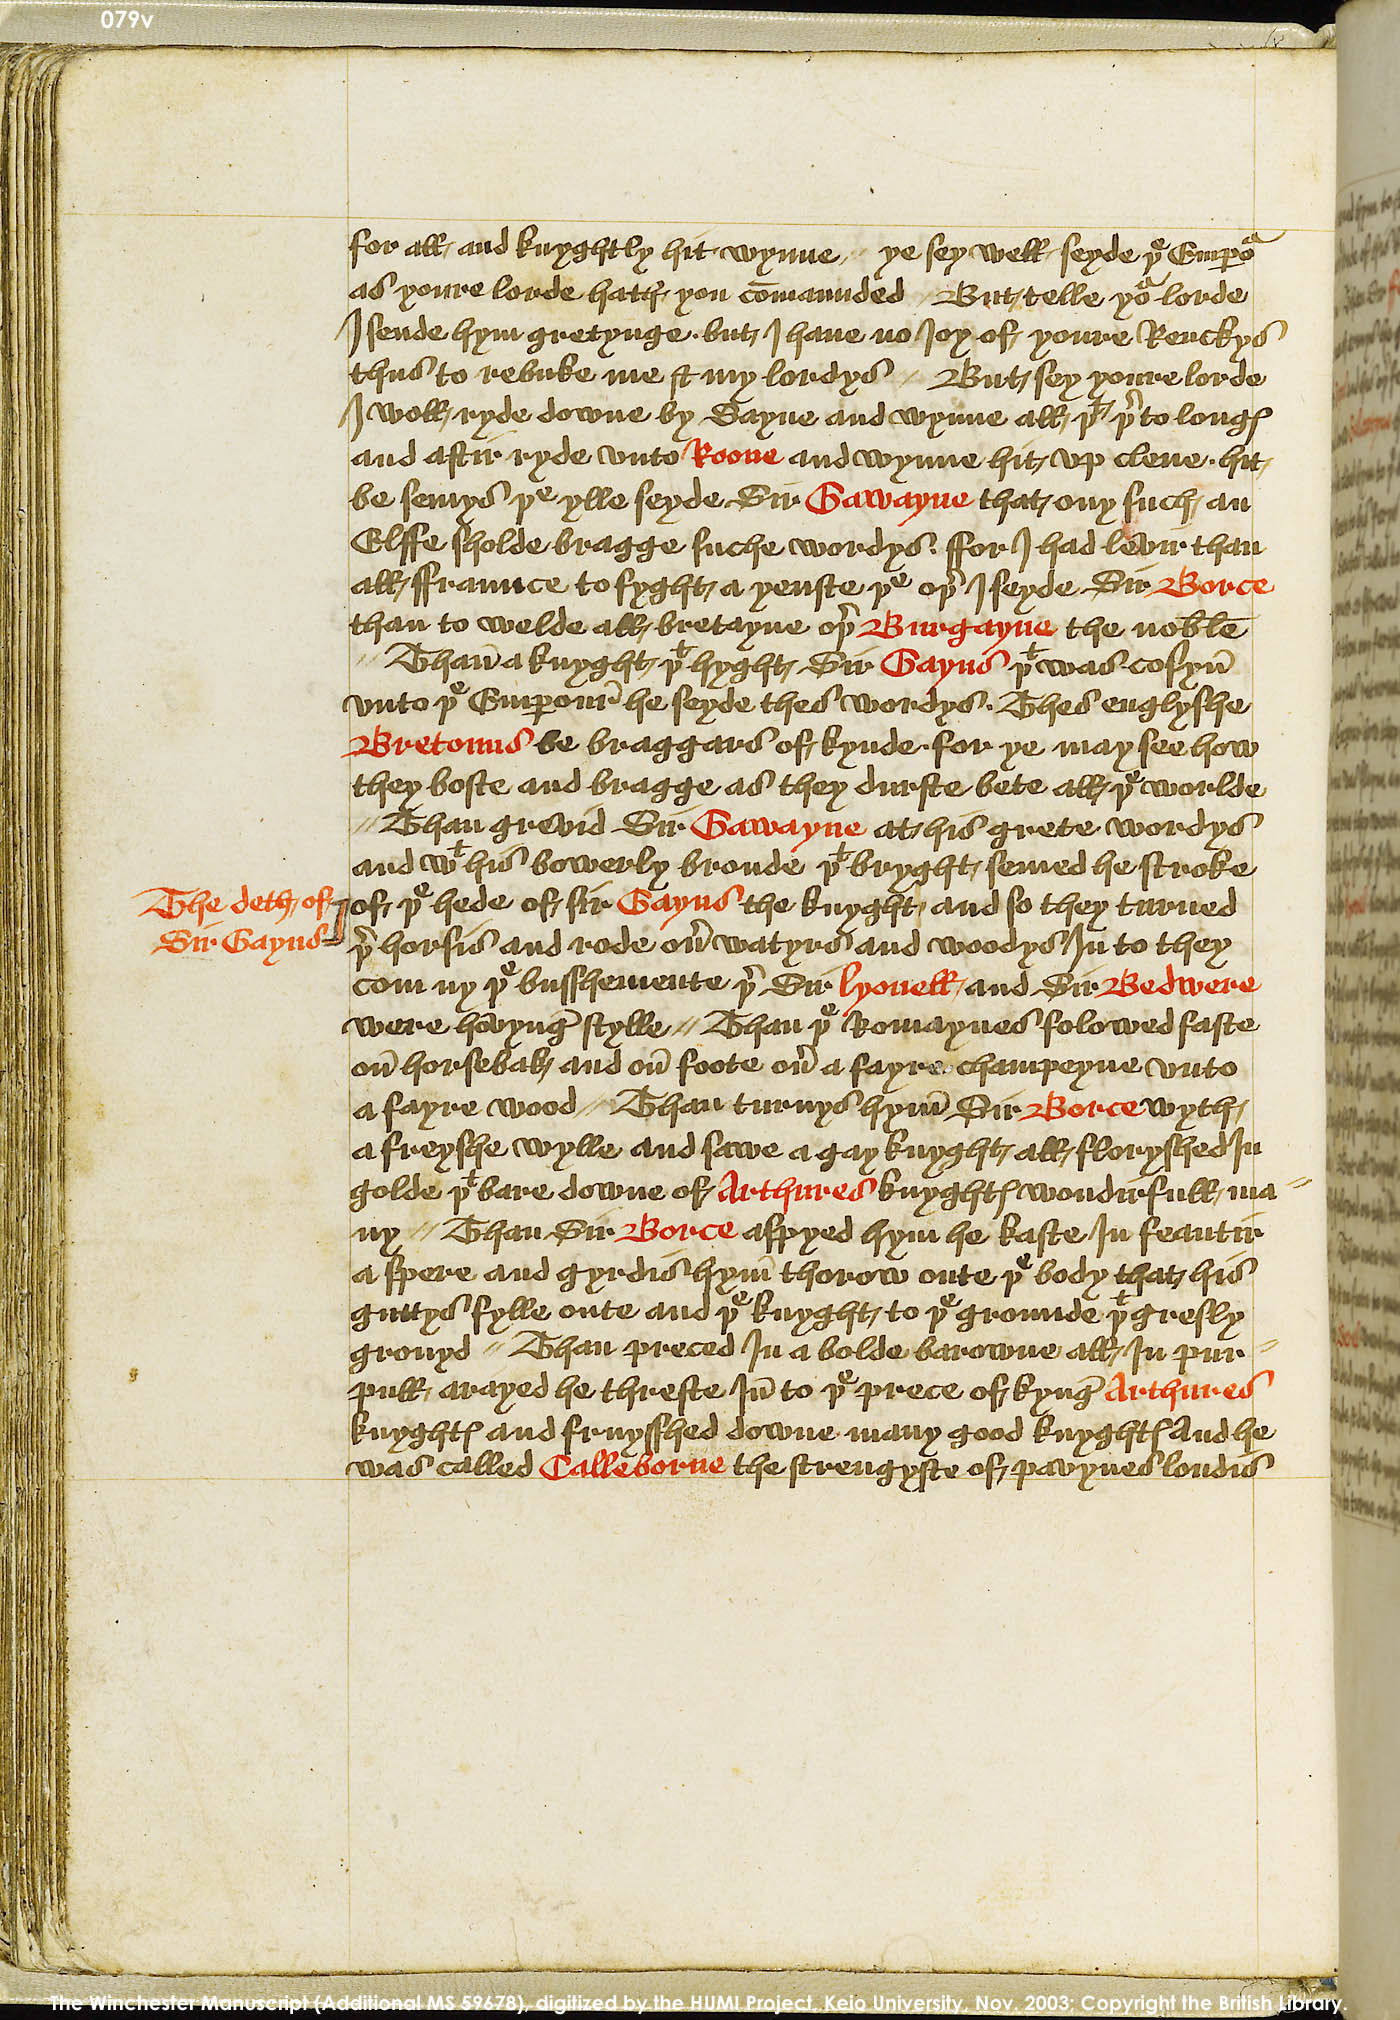 079v
for all and knyghtly hit wynne // ye sey well seyde þe Empoʳ
as youre lorde hath you cōmaunded // But telle yoʳ lorde
I sende hym gretynge · but I haue no Ioy of youre Renckys
thus to rebuke me & my lordys // But sey youre lorde
I woll ryde downe by Sayne and wynne all þᵗ þʳto longꝭ
and aftir ryde vnto Roone and wynne hit vp clene · hit
be semys þe ylle seyde Sir Gawayne that ony such an
Elffe sholde bragge suche wordys · ffor I had levir than
all ffraunce to fyght a yenste þe oþʳ I seyde Sir Borce
than to welde all bretayne oþʳ Burgayne the noble
// Than̄ a knyght þᵗ hyght Sir Gayus þᵗ was cosyn̄
vnto þe Emperour he seyde thes wordys · Thes englyshe
Bretouns be braggars of kynde · for ye may see how
they boste and bragge as they durste bete all þe worlde
// Than grevid Sir Gawayne at his grete wordys
and wᵗ his bowerly bronde þᵗ bryght semed he stroke
The deth of
Sir Gayus
of þe hede of sir Gayus the knyght and so they turned
þʳ horsis and rode ouʳ watyrs and woodys In to they
com ny þe busshemente þʳ Sir lyonell and Sir Bedwere
were hovyng̃ stylle // Than þe Romaynes folowed faste
on̄ horsebak and on̄ foote ouʳ a fayre champeyne vnto
a fayre wood // Than turnys hym̄ Sir Borce wyth
a freyshe wylle and sawe a gay knyght all floryshed In
golde þᵗ bare downe of Arthures knyghtꝭ wondirfull ma=
ny // Than Sir Borce aspyed hym he kaste In feautir
a spere and gyrdis hym̄ thorow oute þe body that his
guttys fylle oute and þe knyght to þe grounde þᵗ gresly
gronyd // Than preced In a bolde barowne all In pur=
pull arayed he threste In̄ to þe prece of kyng̃ Arthures
knyghtꝭ and fruysshed downe many good knyghtꝭ And he
was called Calleborne the strengyste of pavynes londis
The Winchester Manuscript (Additional MS 59678), digitized by the HUMI Project, Keio University, Nov. 2003; Copyright the British Library.